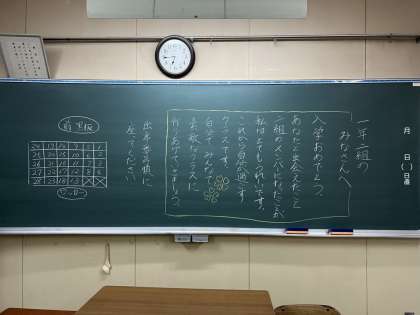 月
日( )
日直
一年二組の
みなさんへ
入学おめでとう。
あなたと出会えたこと
二組のメンバーになれたことが、
私はとてもうれしいです。
これから自分の過ごす
クラスです。
自分で、みんなで
素敵なクラスに
作りあげていきましょう。
出席番号順に
座ってください
前黒板
ロッカー